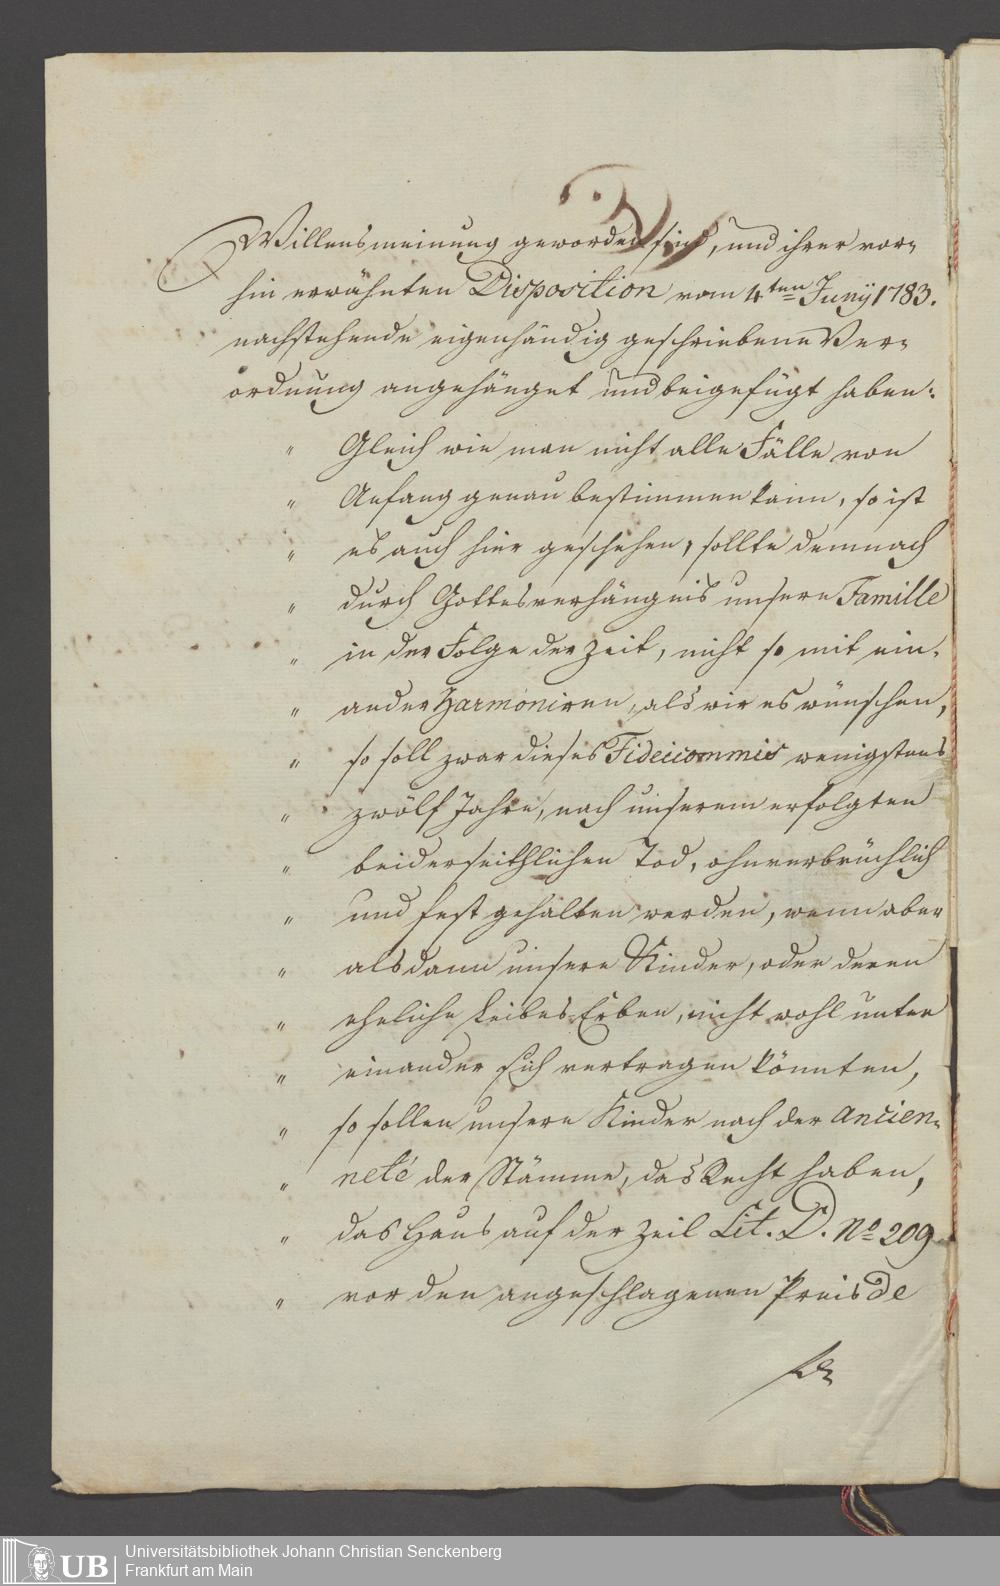 Willensmeinung geworden sind, und ihrer vor„
hin erwähnten Disposition vom 4ten Juny 1783.
nachstehende eigenhändig geschriebene Ver„
ordnung angehänget und beigefügt haben:
„ Gleich wie man nicht alle Fälle von
„ Anfang genau bestimmen kann, so ist
„ es auch hier geschehen, sollte demnach
„ durch Gottesverhängnis unsere Famille
„ in der Folge der Zeit, nicht so mit ein„
„ ander Harmoniren, als wir es wünschen,
„ so soll zwar dieses Fideicommis wenigstens
„ zwölf Jahre, nach unserem erfolgten
„ beiderseithlichen Tod, ohnverbrüchlich
„ und fest gehalten werden, wenn aber
„ alsdann unsere Kinder, oder deren
„ eheliche Leibes Erben, nicht wohl unter
„ einander sich vertragen könnten,
„ so sollen unsere Kinder nach der Ancien„
„ neté der Stämme, das Recht haben,
„ das Haus auf der Zeil Lit. D. No 209
„ vor den angeschlagenen Preis de
Universitätsbibliothek Johann Christian Senckenberg
UB
Frankfurt am Main